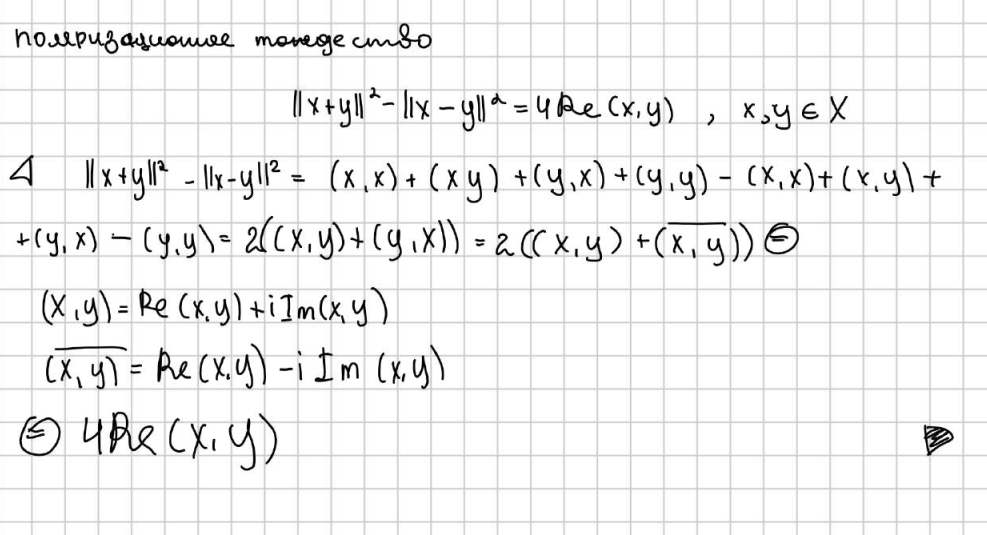 поляризационное тождество
||x+y||² - ||x-y||² = 4Re(x,y) , x,y ∈ X
◁ ||x+y||² - ||x-y||² = (x,x) + (x y) + (y,x) + (y,y) - (x,x) + (x,y) +
+(y,x) - (y,y) = 2((x,y) + (y,x)) = 2((x,y) + (x̅,̅ y̅)) ⊜
(x,y) = Re(x,y) + i Im(x,y)
(x̅,̅ y̅) = Re(x,y) - i Im (x,y)
⊜ 4Re(x,y) ▶